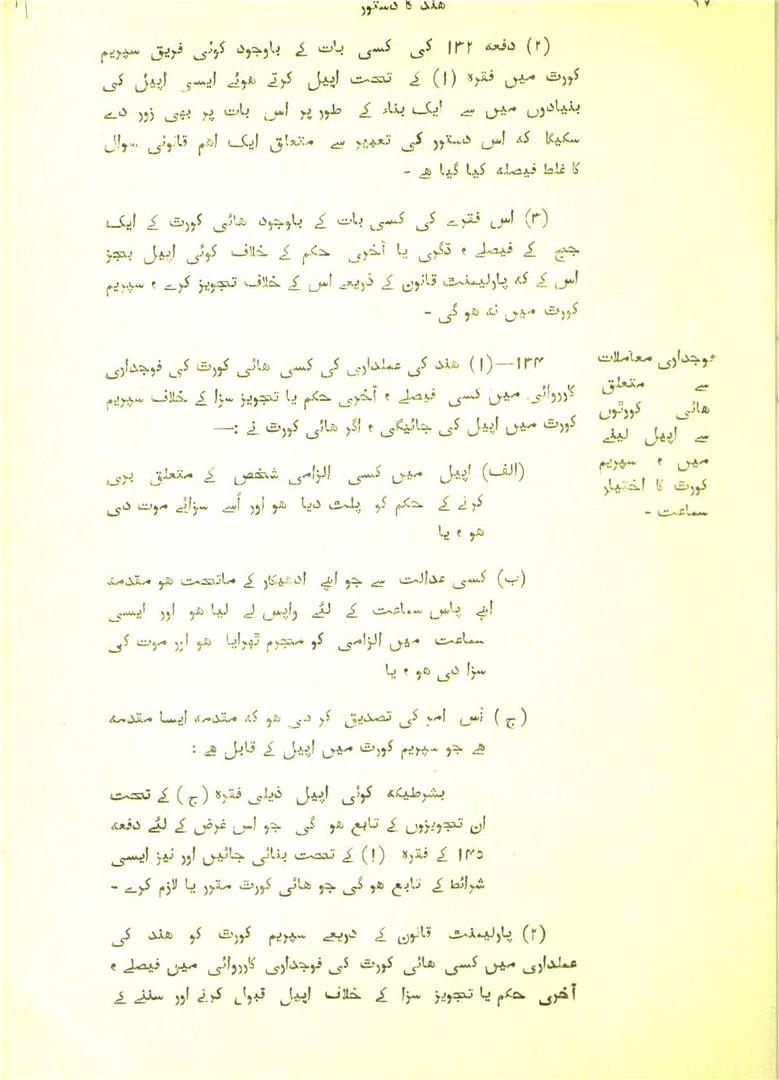 هند کا دستور
(۲) دفعہ ۱۳۲ کی کسی بات کے باوجود کوئی فریق سپریم
کورٹ میں فقرہ (۱) کے تحت اپیل کرتے ہوئے ایسی اپیل کی
بنیادوں میں سے ایک بناء کے طور پر اس بات پر بھی زور دے
سکیگا کہ اس دستور کی تعبیر سے متعلق ایک اہم قانونی سوال
کا غلط فیصلہ کیا گیا ہے -
(۳) اس فقرے کی کسی بات کے باوجود ہائی کورٹ کے ایک
جج کے فیصلے ، ڈگری یا آخری حکم کے خلاف کوئی اپیل بجز
اس کے کہ پارلیمنٹ قانون کے ذریعے اس کے خلاف تجویز کرے ، سپریم
کورٹ میں نہ ہو گی -
فوجداری معاملات
سے متعلق
ہائی کورٹوں
سے اپیل لینے
میں ، سپریم
کورٹ کا اختیار
سماعت -
۱۳۴—(۱) ہند کی عملداری کی کسی ہائی کورٹ کی فوجداری
کارروائی میں کسی فیصلے ، آخری حکم یا تجویز سزا کے خلاف سپریم
کورٹ میں اپیل کی جائیگی ، اگر ہائی کورٹ نے :—
(الف) اپیل میں کسی الزامی شخص کے متعلق بری
کرنے کے حکم کو پلٹ دیا ہو اور اُسے سزائے موت دی
ہو ، یا
(ب) کسی عدالت سے جو اپنے ادھیکار کے ماتحت ہو مقدمہ
اپنے پاس سماعت کے لئے واپس لے لیا ہو اور ایسی
سماعت میں الزامی کو مجرم ٹھرایا ہو اور موت کی
سزا دی ہو ، یا
(ج) اُس امر کی تصدیق کر دی ہو کہ مقدمہ ایسا مقدمہ
ہے جو سپریم کورٹ میں اپیل کے قابل ہے :
بشرطیکہ کوئی اپیل ذیلی فقرہ (ج) کے تحت
ان تجویزوں کے تابع ہو گی جو اس غرض کے لئے دفعہ
۱۴۵ کے فقرہ (۱) کے تحت بنائی جائیں اور نیز ایسی
شرائط کے تابع ہو گی جو ہائی کورٹ مقرر یا لازم کرے -
(۲) پارلیمنٹ قانون کے ذریعے سپریم کورٹ کو ہند کی
عملداری میں کسی ہائی کورٹ کی فوجداری کارروائی میں فیصلے ،
آخری حکم یا تجویز سزا کے خلاف اپیل قبول کرنے اور سننے کے